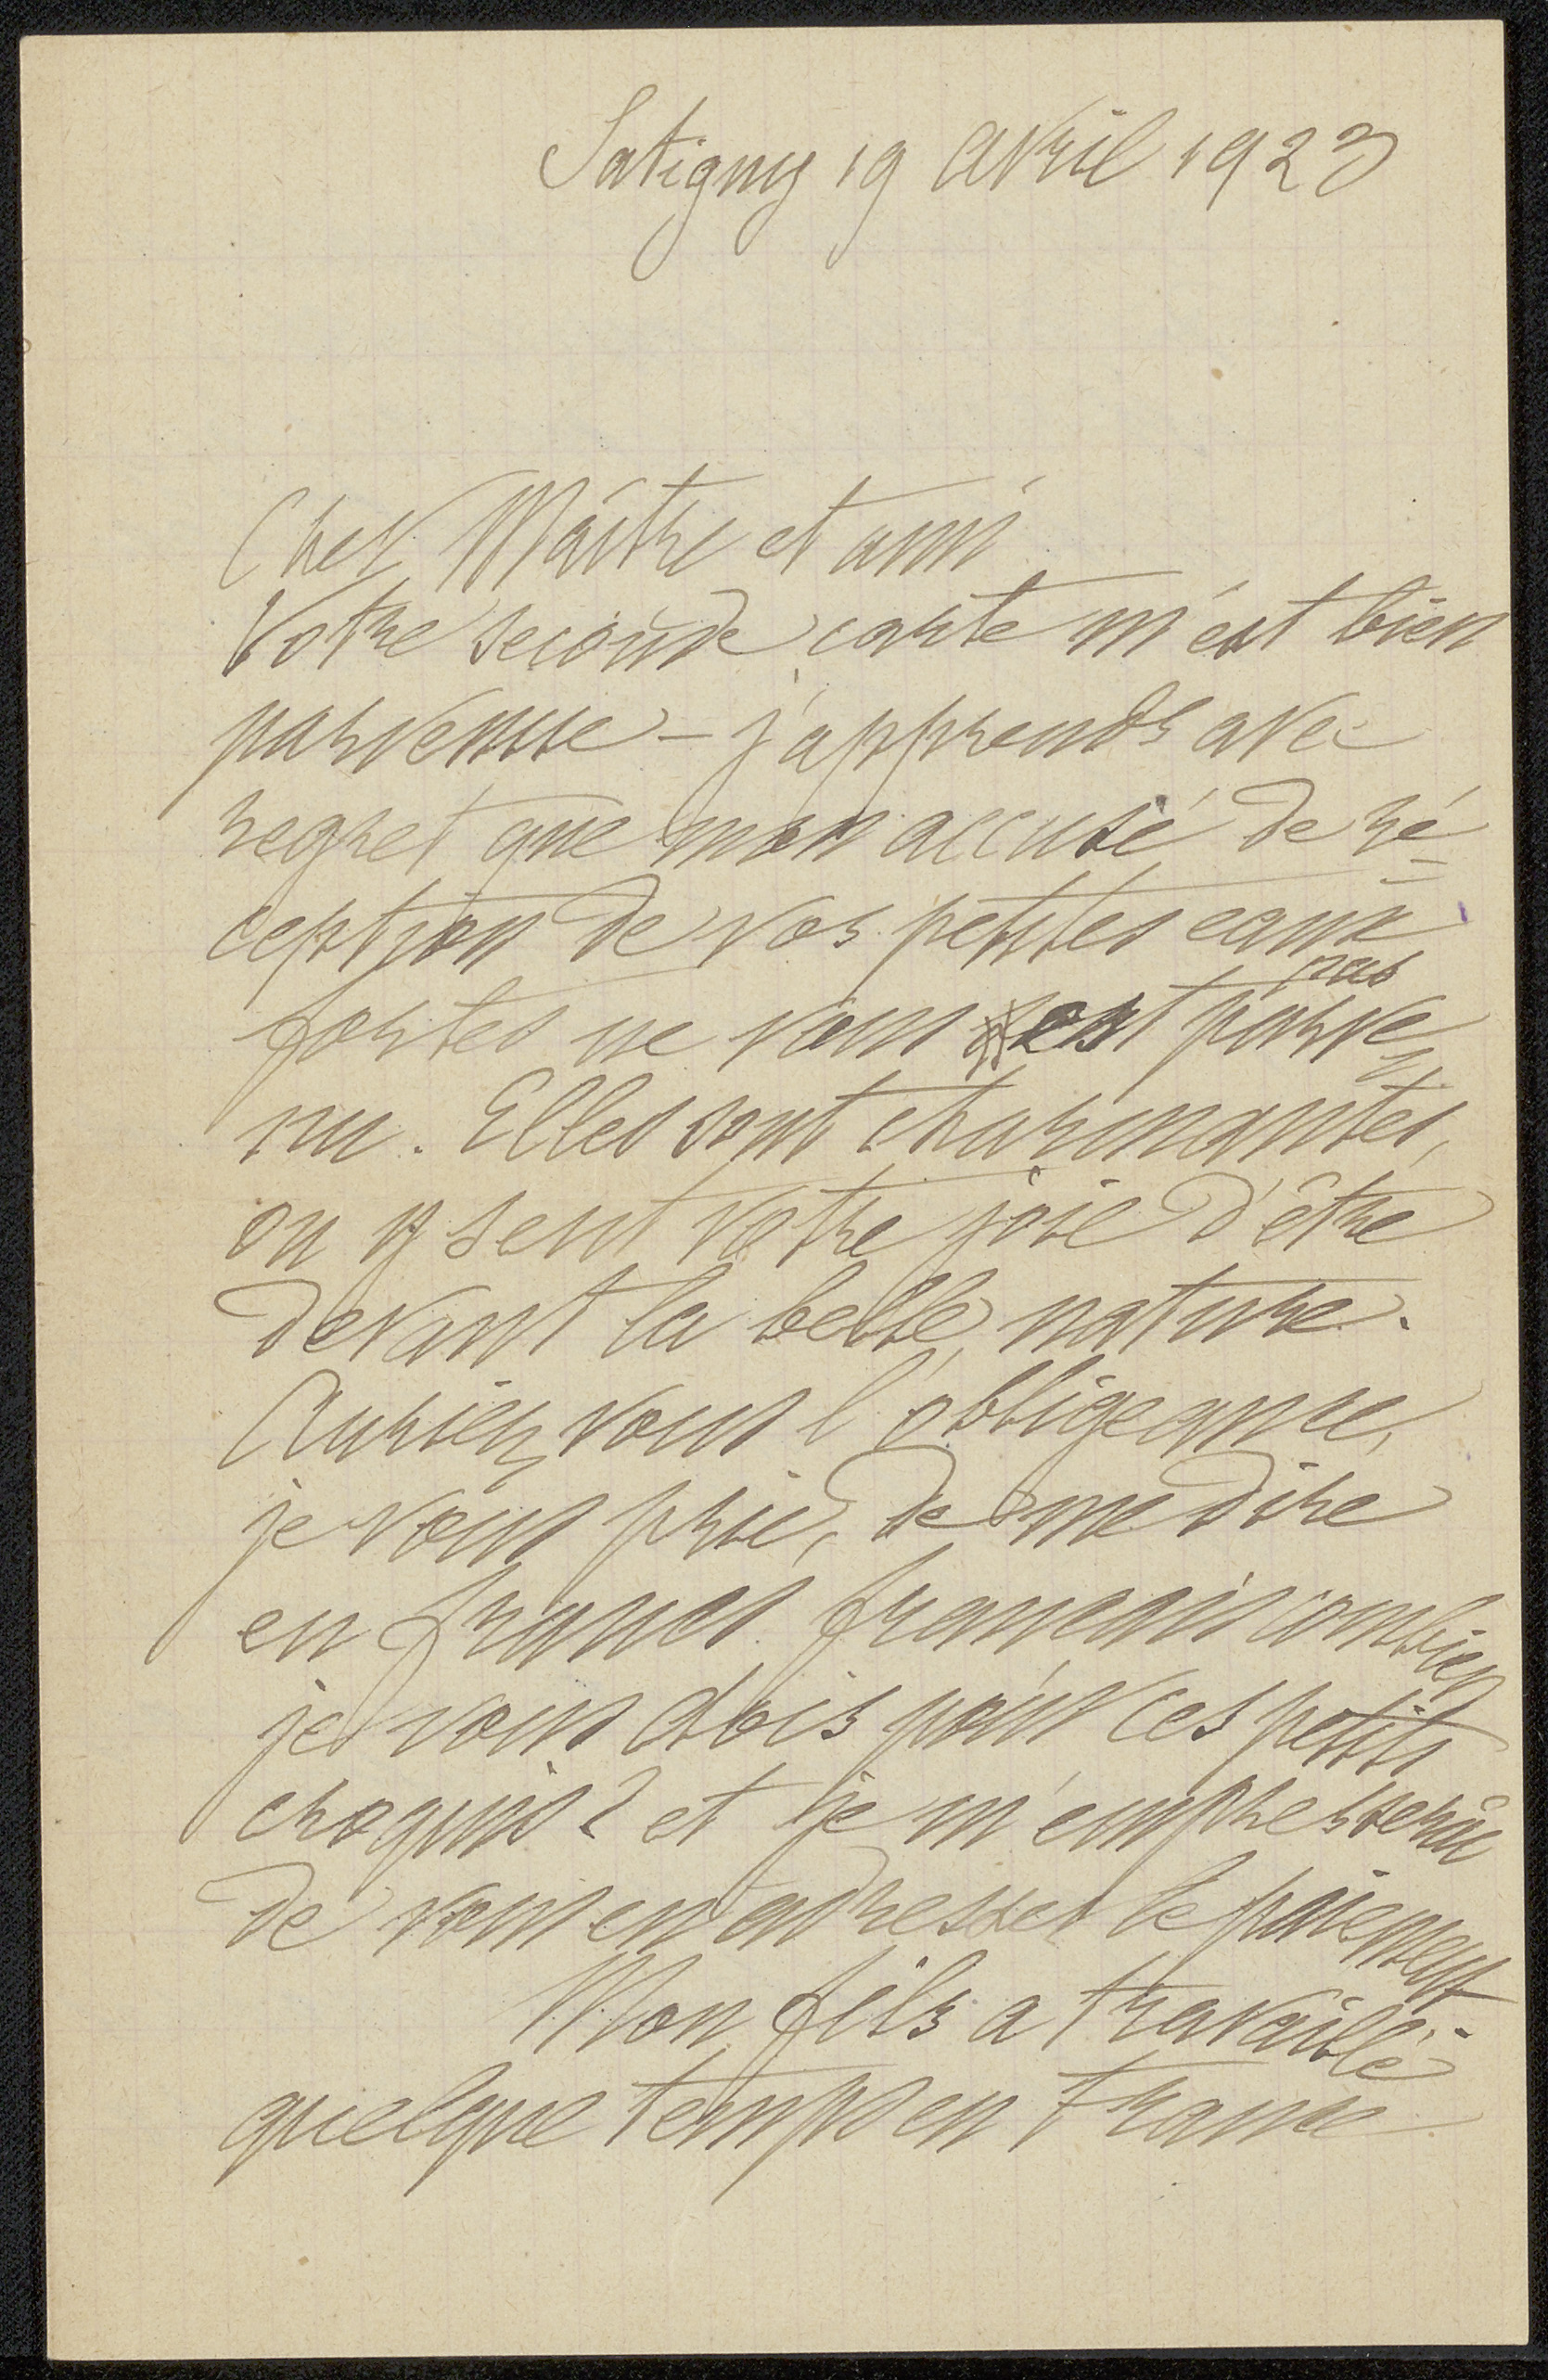 Satigny 19 avril 1923
Cher Maître et ami
Votre seconde carte m'est bien
parvenue – j'apprends avec
regret que mon accusé de ré=
ception de vos petites eaux
fortes ne vous est pas parve=
nu. Elles sont charmantes,
on y sent votre joie d'être
devant la belle nature.
Auriez vous l'obligeance,
je vous prie, de me dire
en francs français combien
je vous dois pour ces petits
croquis? et je m'empresserai
de vous en adresser le paiement.
Mon fils a travaillé
quelque temps en France